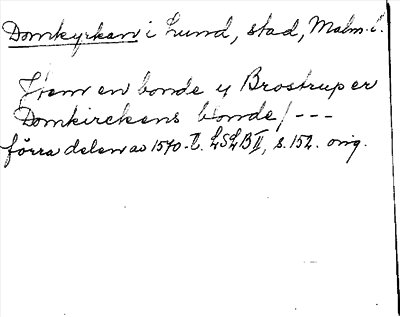 Domkyrkan i Lund, stad, Malm. l.
Hem en bonde y Brostrup er
Domkirckens bonde / ---
förra delen av 1570-t. LSLB II, s. 152. orig.